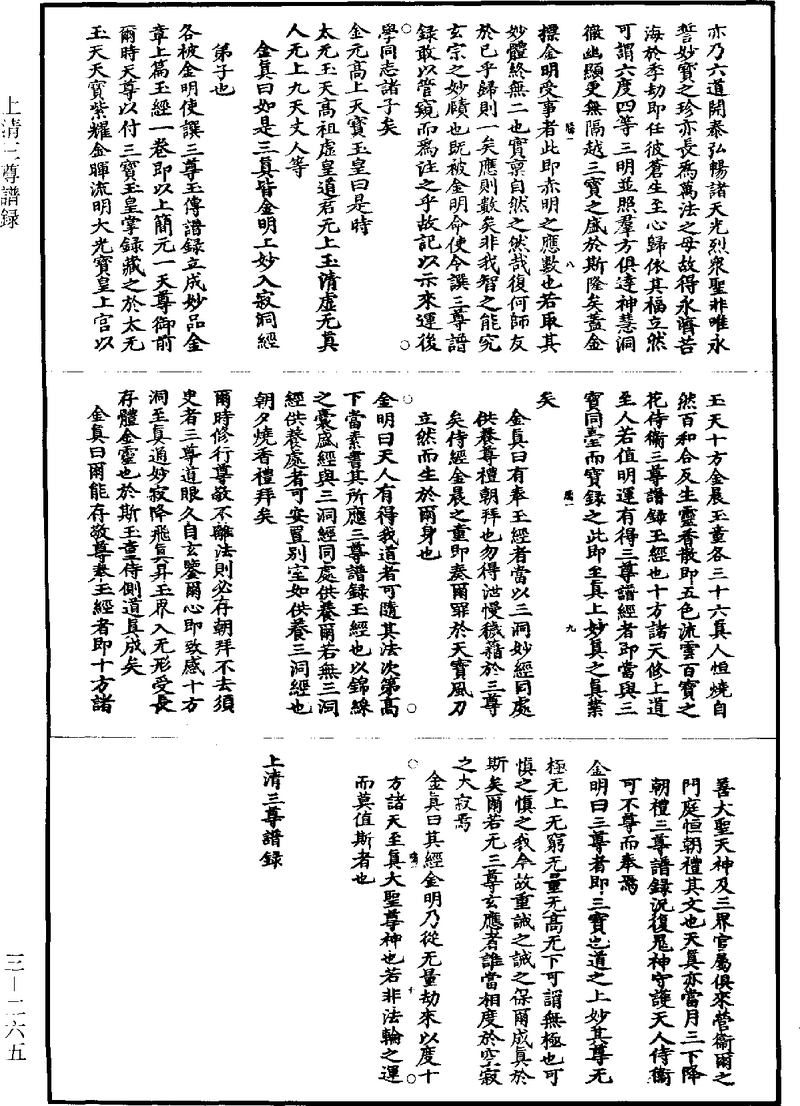 亦乃六道開泰弘暢諸天光烈衆聖非唯永
誓妙寶之珍亦長為萬法之母故得永濟苦
海於季劫即任彼蒼生至心歸依其福立然
可謂六度四等三明並照羣方俱達神慧洞
徹幽顯更無隔越三寶之盛於斯隆矣蓋金
摽金明受事者此即赤明之應數也若取其
妙體終無二也寶稟自然之然哉復何師友
於已乎歸則一矣應則數矣非我智之能究
玄宗之妙賾也既被金明命使令譔三尊譜
録敢以管窺而為注之乎故記以示來運後
學同志諸子矣
金元高上天寶玉皇曰是時
太无玉天高祖虛皇道君无上玉清虛无真
人无上九天丈人等
金真曰如是三真皆金明上妙入寂洞經
弟子也
各被金明使譔三尊玉傳譜録立成妙品金
章上篇玉經一卷即以上簡元一天尊御前
爾時天尊以付三寶玉皇掌録藏之於太无
玉天天寶紫耀金暉流明大光寶皇上宮以
玉天十方金晨玉童各三十六真人恒燒自
然百和合反生靈香散即五色流雲百寶之
花侍衛三尊譜録玉經也十方諸天修上道
至人若值明運有得三尊譜經者即當與三
寶同臺而寶録之此即至真上妙真之真業
矣
金真曰有奉玉經者當以三洞妙經同處
供養尊禮朝拜也勿得泄慢穢藉於三尊
矣侍經金晨之童即奏爾罪於天寶風刀
立然而生於爾身也
金明曰天人有得我道者可隨其法次第高
下當素書其所應三尊譜録玉經也以錦綵
之囊盛經與三洞經同處供養爾若無三洞
經供養處者可安置別室如供養三洞經也
朝夕燒香禮拜矣
爾時修行尊敬不離法則必存朝拜不去須
史者三尊道眼久自玄鑒爾心即致感十方
洞至真通妙寂降飛真昇玉界入无形受長
存體金靈也於斯玉童侍側道真成矣
金真曰爾能存敬尊奉玉經者即十方諸
善大聖天神及三界官屬俱來營衛爾之
門庭恒朝禮其文也天真亦當月三下降
朝禮三尊譜録況復鬼神守護天人侍衛
可不尊而奉焉
金明曰三尊者即三寶也道之上妙其尊无
極无上无窮无量无高无下可謂無極也可
慎之慎之我今故重誡之誡之保爾成真於
斯矣爾若无三尊玄應者誰當相度於空寂
之大寂焉
金真曰其經金明乃從无量劫來以度十
方諸天至真大聖尊神也若非法輪之運
而莫值斯者也
上清三尊譜録
上清三尊譜録
三—二六五